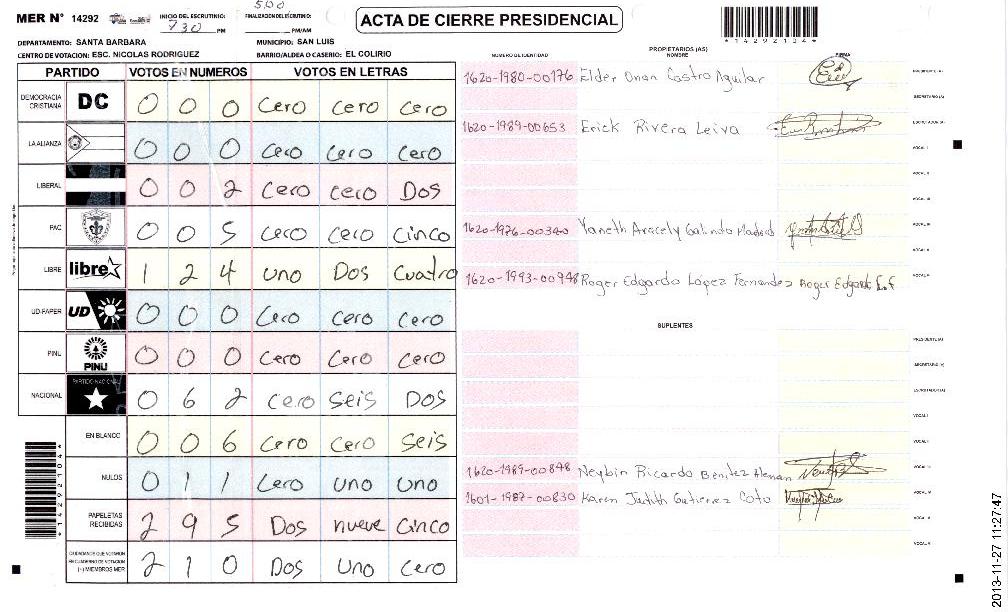 MER N° 14292 INICIO DEL ESCRUTINIO: 730 PM FINALIZACION DEL ESCRUTINIO: 500 PM/AM
ACTA DE CIERRE PRESIDENCIAL
*14292104*
DEPARTAMENTO: SANTA BARBARA MUNICIPIO: SAN LUIS
CENTRO DE VOTACION: ESC. NICOLAS RODRIGUEZ BARRIO/ALDEA O CASERIO: EL COLIRIO
PARTIDO VOTOS EN NUMEROS VOTOS EN LETRAS
DEMOCRACIA CRISTIANA DC 0 0 0 Cero cero cero
LA ALIANZA 0 0 0 Cero Cero Cero
LIBERAL 0 0 2 Cero cero Dos
PAC 0 0 5 Cero Cero Cinco
LIBRE libre 1 2 4 uno Dos Cuatro
UD-FAPER UD 0 0 0 Cero Cero Cero
PINU PINU 0 0 0 Cero Cero Cero
NACIONAL PARTIDO NACIONAL 0 6 2 Cero Seis Dos
EN BLANCO 0 0 6 Cero Cero Seis
NULOS 0 1 1 Cero uno uno
PAPELETAS RECIBIDAS 2 9 5 Dos nueve Cinco
CIUDADANOS QUE VOTARON EN CUADERNO DE VOTACION (+) MIEMBROS MER 2 1 0 Dos Uno Cero
*14292104*
PROPIETARIOS (AS)
NUMERO DE IDENTIDAD NOMBRE FIRMA
1620-1980-00176 Elder Onan Castro Aguilar PRESIDENTE (A)
SECRETARIO (A)
1620-1989-00653 Erick Rivera Leiva ESCRUTADOR (A)
VOCAL I
VOCAL II
1620-1976-00340 Yaneth Aracely Galindo Madrid VOCAL III
VOCAL IV
1620-1993-00948 Roger Edgardo López Fernandez Roger Edgardo L.F VOCAL V
SUPLENTES
PRESIDENTE (A)
SECRETARIO (A)
ESCRUTADOR (A)
VOCAL I
VOCAL II
1620-1989-00848 Neybin Ricardo Benitez Aleman VOCAL III
1601-1987-00830 Karen Judith Gutierrez Coto VOCAL IV
VOCAL V
VOCAL VI
2013-11-27 11:27:47